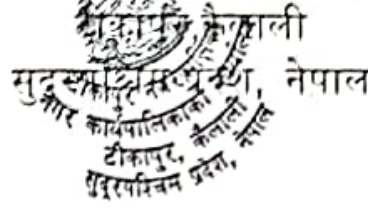 टीकापुर, कैलाली
सुदूरपश्चिम प्रदेश, नेपाल
नगर कार्यपालिकाको
टीकापुर, कैलाली
सुदूरपश्चिम प्रदेश, नेपाल